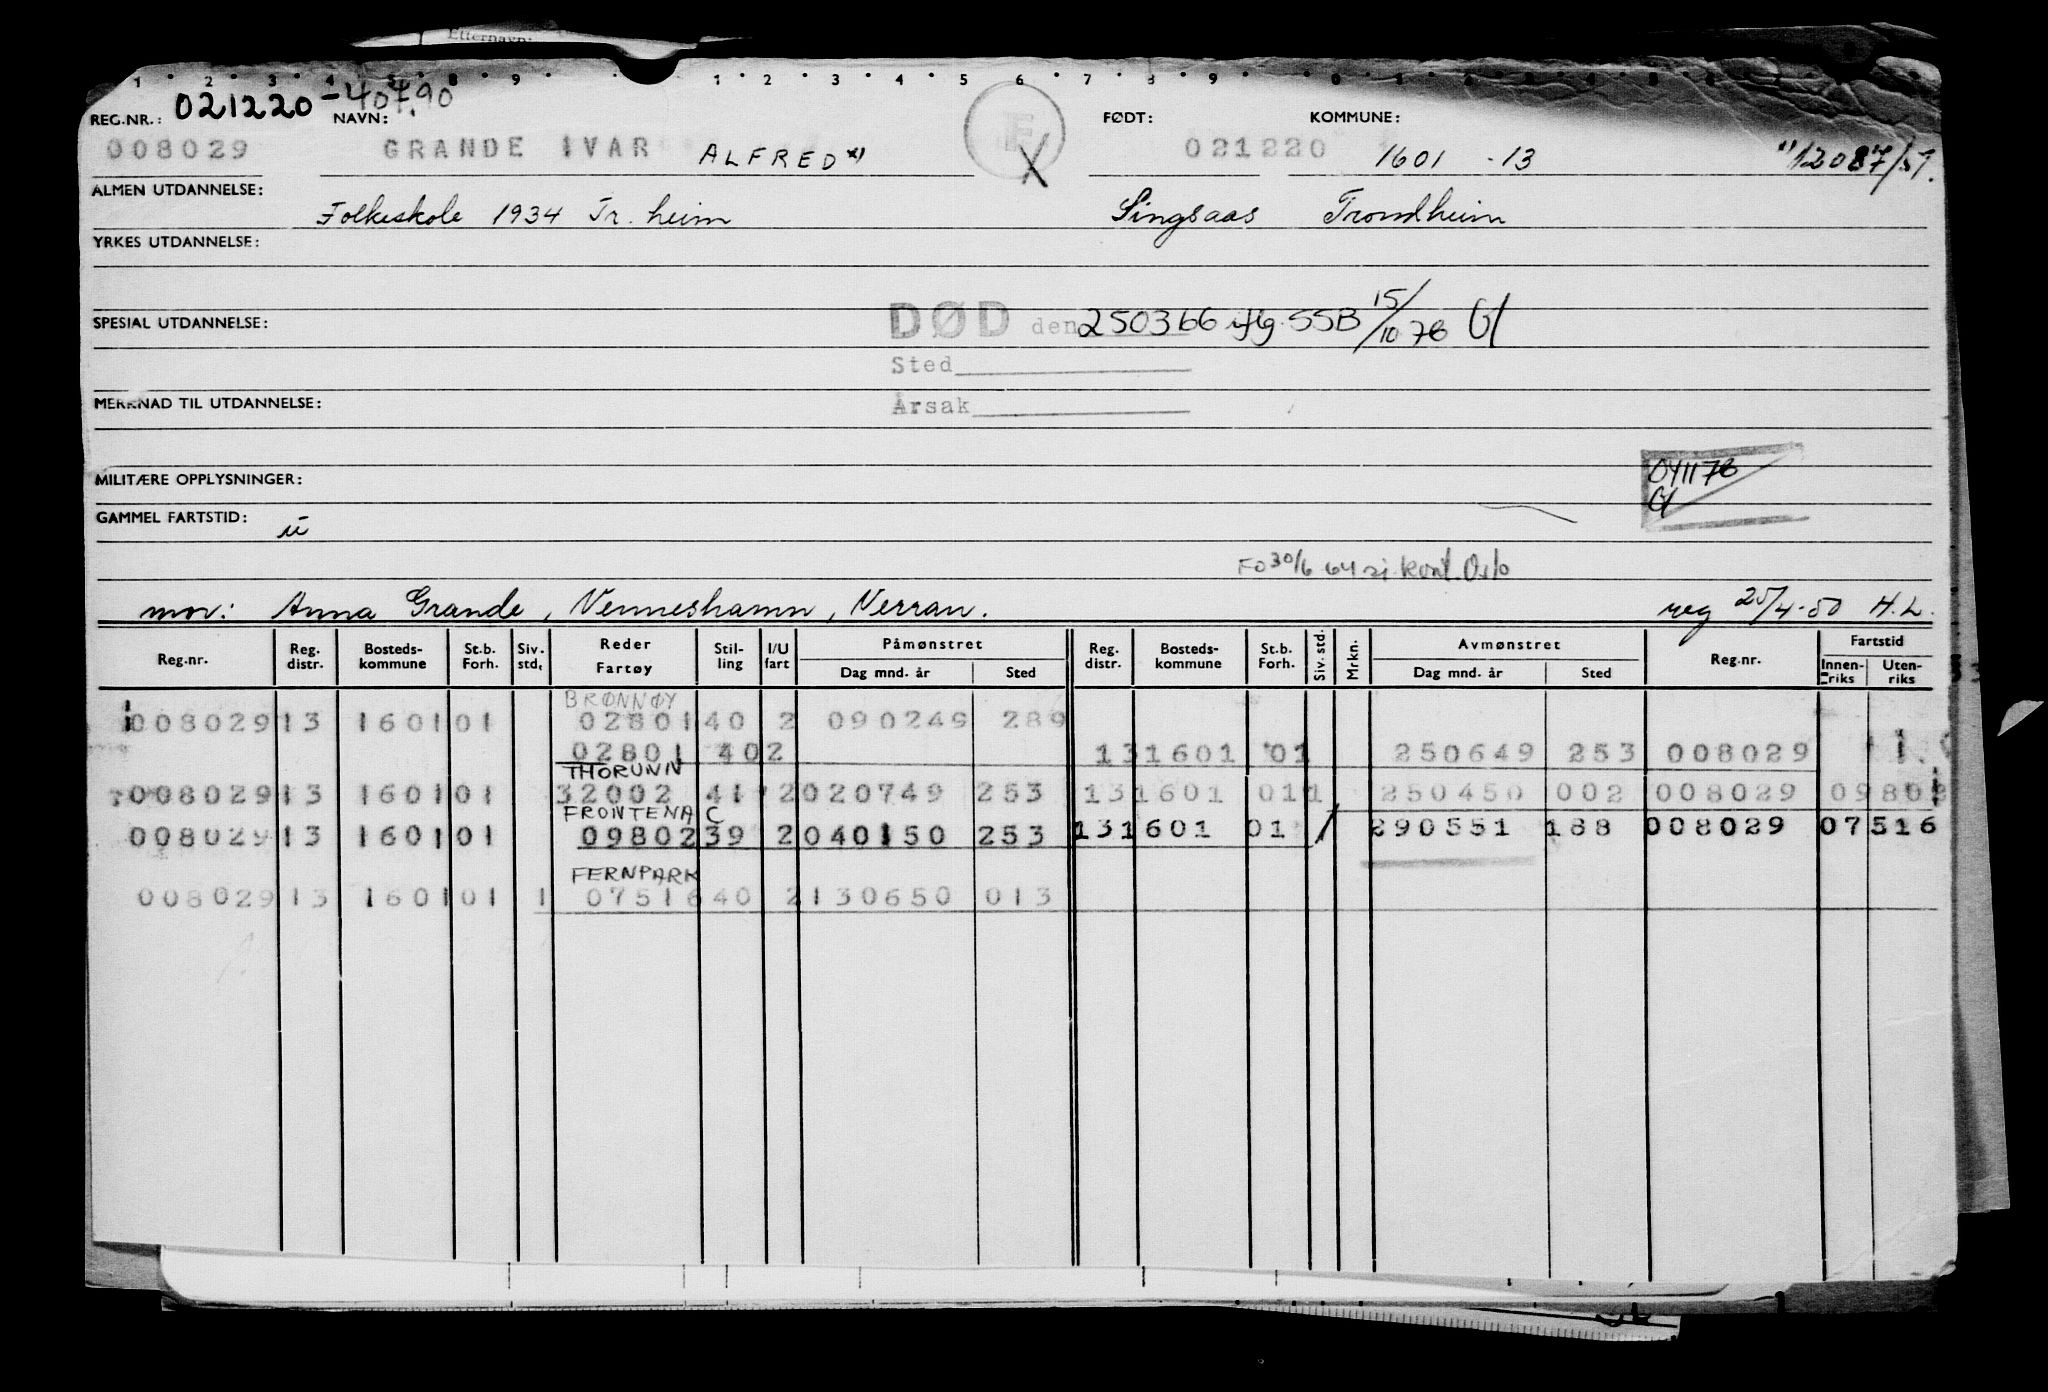 Etternavn:
1 2 3 4 5 8 9 1 2 3 4 5 6 7 8 9
REG.NR.: 021220-40790 NAVN: FØDT: KOMMUNE:
008029 GRANDE IVAR ALFRED x) E 021220 1601-13 "12087/51.
ALMEN UTDANNELSE: Folkeskole 1934 Tr.heim Singsaas Trondheim
YRKES UTDANNELSE:
SPESIAL UTDANNELSE: DØD den 250366 iflg. SSB 15/10 76
Sted
MERKNAD TIL UTDANNELSE: Årsak
MILITÆRE OPPLYSNINGER: 041176
GAMMEL FARTSTID: u
FO 30/6 64 sj. kont. Oslo
mor: Anna Grande, Venneshamn, Verran. reg 25/4-50 H.L.
Reg.nr. Reg. distr. Bosteds-kommune St.b. Forh. Siv. std. Reder Fartøy Stil-ling I/U fart Påmønstret Dag mnd. år Sted Reg. distr. Bosteds-kommune St.b. Forh. Siv. std. Mrkn. Avmønstret Dag mnd. år Sted Reg.nr. Fartstid Innen-riks Uten-riks
BRØNNØY
008029 13 1601 01 02801 40 2 090249 289
02801 40 2 13 1601 01 250649 253 008029
THORUNN
008029 13 1601 01 32002 41 2 020749 253 13 1601 01 1 250450 002 008029 09802
FRONTENAC
008029 13 1601 01 09802 39 2 040150 253 13 1601 01 / 290551 188 008029 07516
FERNPARK
008029 13 1601 01 1 07516 40 2 130650 013